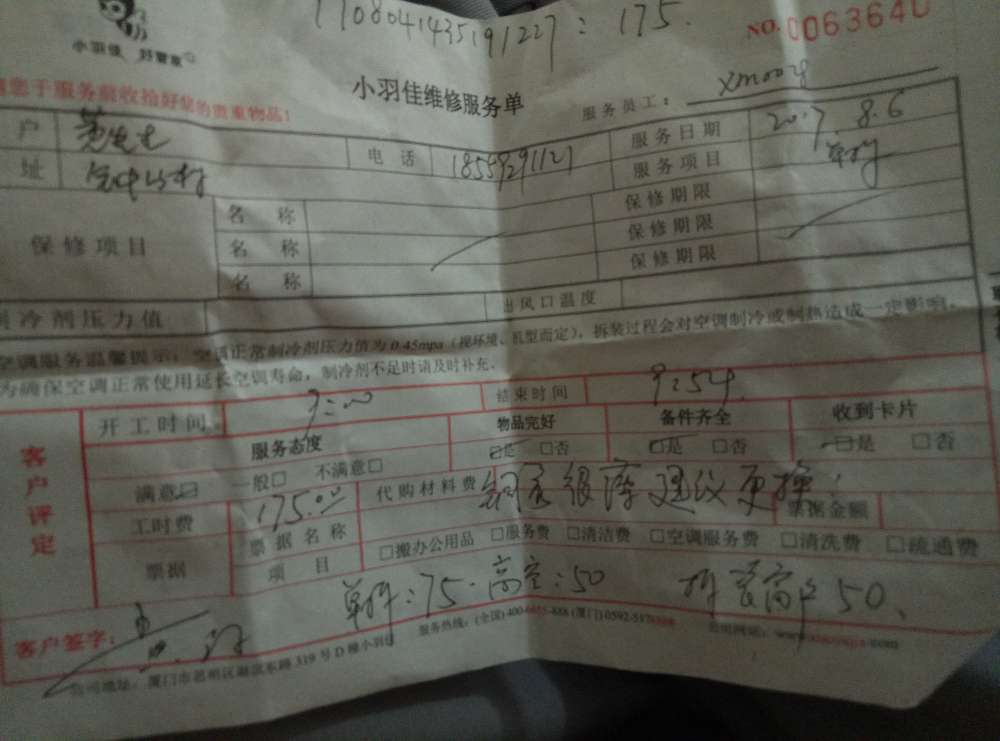 170804143519 1227：175.
NO.0063640
小羽佳 好管家
小羽佳维修服务单
于服务前收拾好您的贵重物品!
服务员工：
户 电话 18559291127 服务日期 2017.8.6
址 服务项目 单拆
保修项目 名称 保修期限
名称 保修期限
名称 保修期限
制冷剂压力值 出风口温度
空调服务温馨提示：空调正常制冷剂压力值为0.45mpa（视环境、机型而定），拆装过程会对空调制冷或制热造成一定影响，
为确保空调正常使用延长空调寿命，制冷剂不足时请及时补充。
开工时间 9:00 结束时间 9:54
客户评定
服务态度 物品完好 备件齐全 收到卡片
满意☑ 一般□ 不满意□ ☑是 □否 ☑是 □否 ☑是 □否
工时费 175.00 代购材料费 建议更换! 票据金额
票据 票据名称
项目 □搬办公用品 □服务费 □清洁费 □空调服务费 □清洗费 □疏通费
单拆：75. 高空：50 50、
客户签字：
服务热线：(全国)400- -888 (厦门)0592-
公司地址：厦门市思明区 东路319号D幢小羽佳